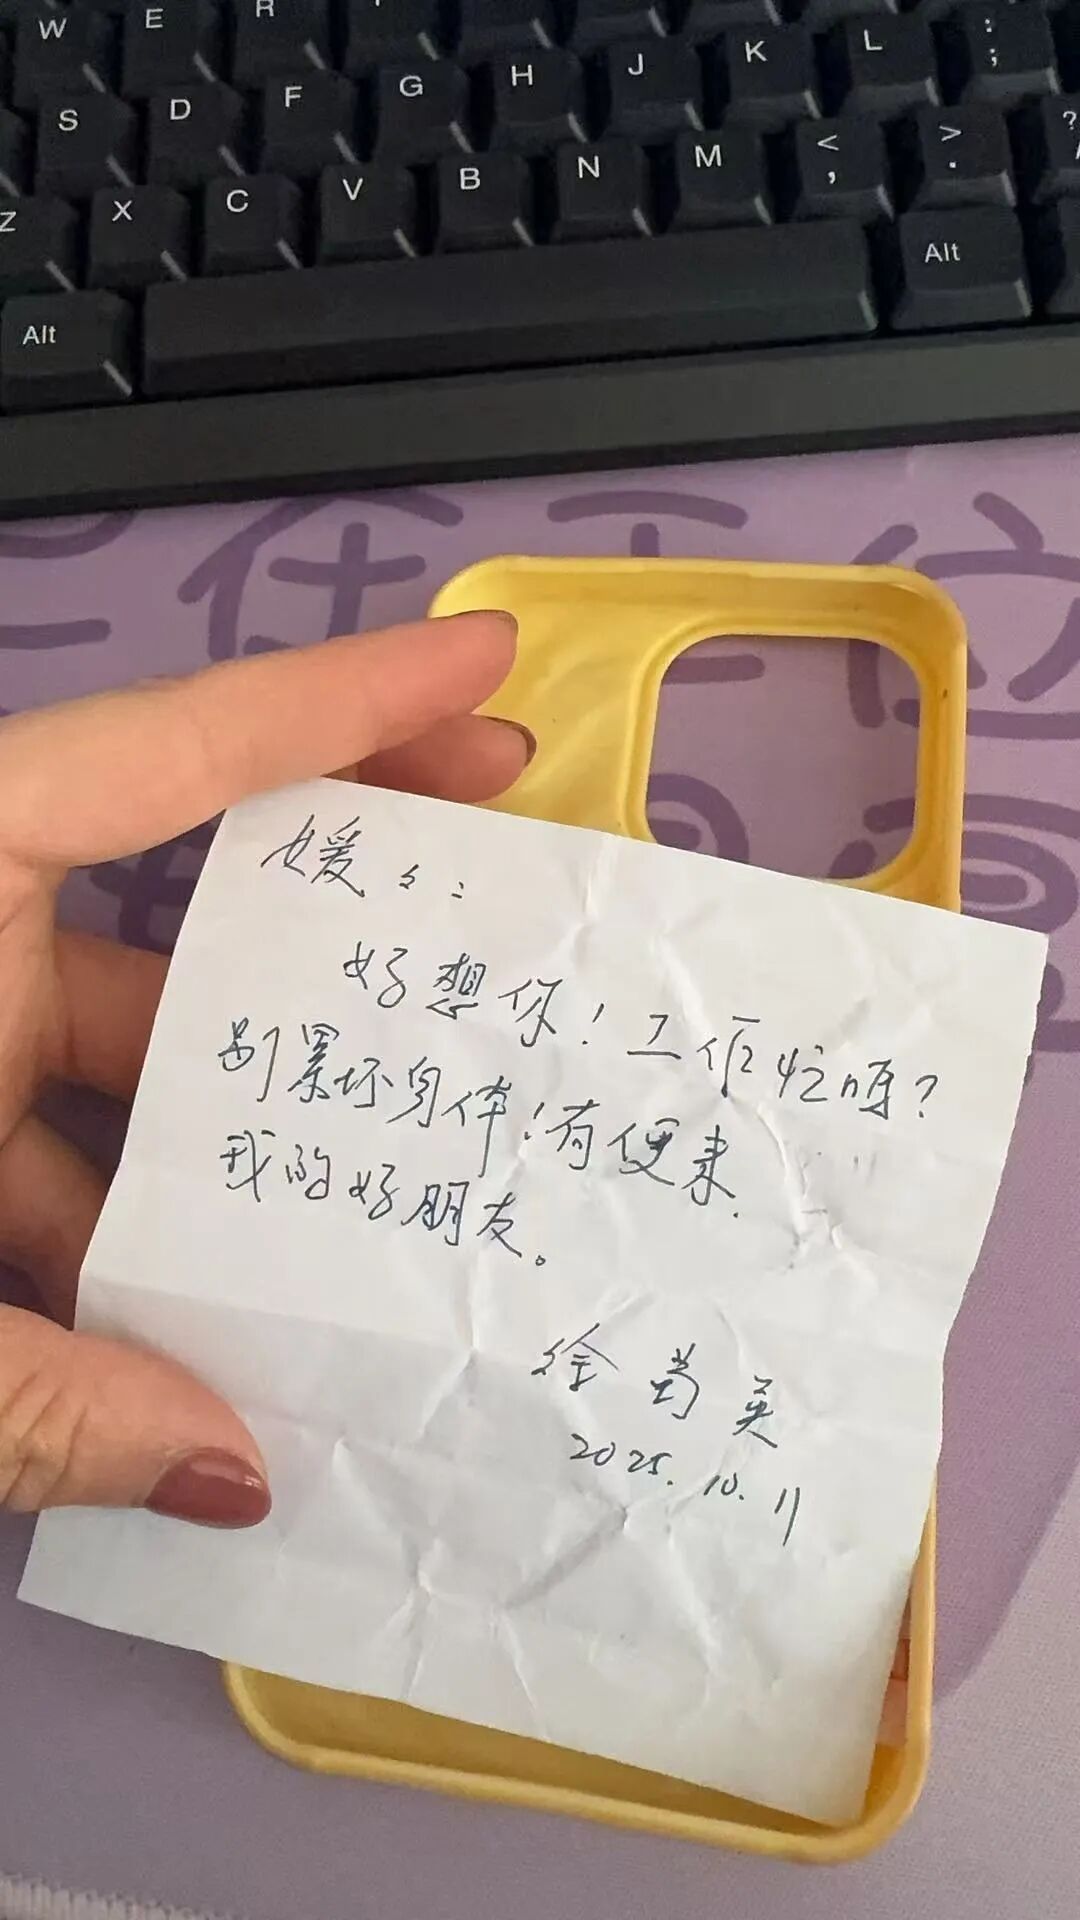 W E R
S D F G H J K L : ;
Z X C V B N M < , > . ?
Alt Alt
媛々:
好想你!工作忙吗?
别累坏身体!有便来.
我的好朋友。
徐蔼英
2025.10.11